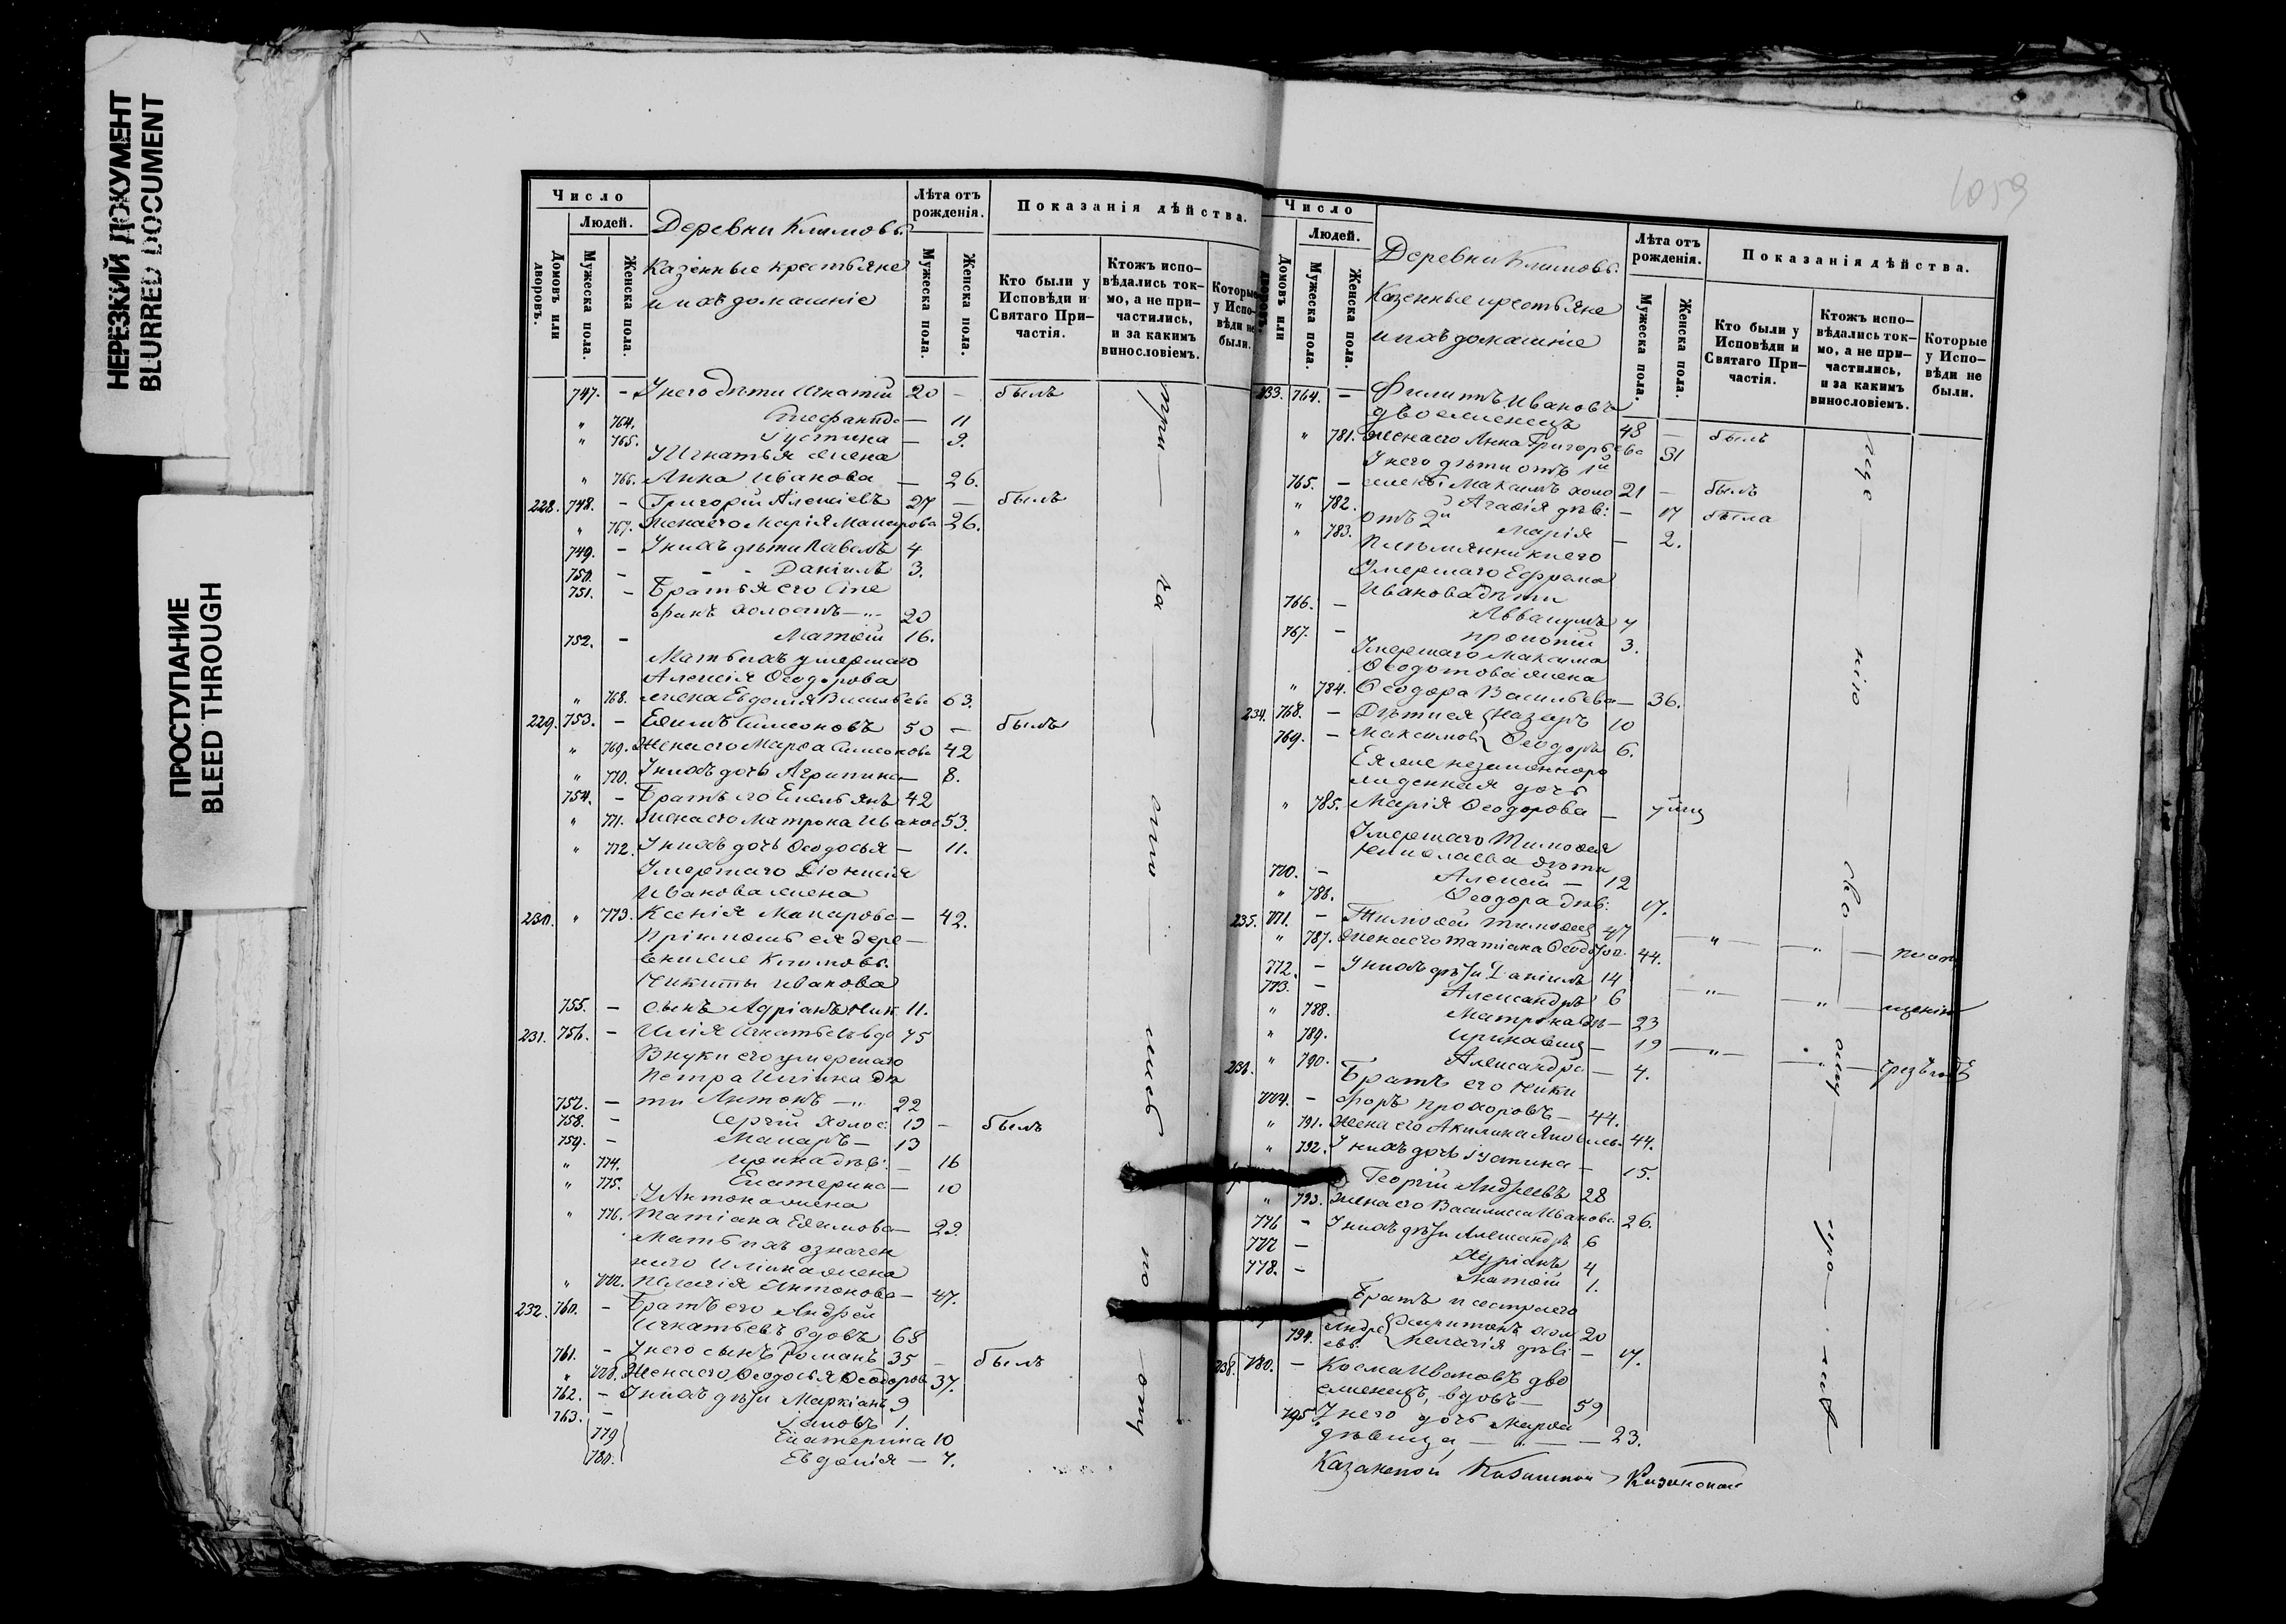 НЕРЕЗКИЙ ДОКУМЕНТ
BLURRED DOCUMENT
ПРОСТУПАНИЕ
BLEED THROUGH
Число
Людей.
Домовъ или дворовъ.
Мужеска пола.
Женска пола.
Деревни Климовъ.
Казенные крестьяне
и ихъ домашніе
Лѣта отъ рожденія.
Мужеска пола.
Женска пола.
Показанія дѣйства.
Кто были у Исповѣди и Святаго При-
частія.
Ктожъ испо-
вѣдались ток-
мо, а не при-
частились,
и за какимъ
винословіемъ.
Которые
у Испо-
вѣди не
были.
747. - У него дѣти Игнатій 20 - былъ
" 764. Стефанида - 11
" 765. Іустина - 9.
У Игнатья жена
" 766. Анна Иванова - 26.
228. 748. - Григорій Алексіевъ 27 - былъ
" 767. Жена его Марія Макарова 26.
749. - У нихъ дѣти Павелъ 4
750. - - - Даніилъ 3.
751. - Братья его Сте
фанъ холостъ - " 20
752. - Матѳій 16.
Мать ихъ умершаго
Алексія Ѳеодорова
" 768. жена Евдокія Васильева 63.
229. 753. - Ефимъ Симеоновъ 50 - былъ
" 769. Жена его Марѳа Симеонова 42
" 770. У нихъ дочь Агрипина - 8.
754. - Братъ его Емельянъ 42
" 771. Жена его Матрона Иванов 53.
" 772. У нихъ дочь Ѳеодосья - 11.
Умершаго Діонисія
Иванова жена
230. " 773. Ксенія Макарова - 42.
Пріимышъ ея дере-
вни же Климовъ.
Никиты Иванова
755. - сынъ Адріанъ Ник. 11.
231. 756. - Илія Игнатьевъ вдо 75
Внуки его умершаго
Петра Иліина дѣ
757. - ти Антонъ - " 22
758. - Сергій холос. 19 - былъ
759. - Макаръ - 13
" 774. Ирина дѣв. - 16
" 775. Екатерина - 10
У Антона жена
" 776. Татіана Ефимова - 22.
Мать ихъ означен
наго Иліина жена
" 777. Пелагія Антонова - 47.
232. 760. - Братъ его Андрей
Игнатьевъ вдовъ 68
761. - У него сынъ Романъ 35 - былъ
" 778. Жена его Ѳеодосья Ѳеодоров 37.
762. - У нихъ дѣти Маркіанъ 9
763. - Іаковъ 1.
779 Екатерина 10
780. Евдокія - 7.
1059
Число
Людей.
Домовъ или дворовъ.
Мужеска пола.
Женска пола.
Деревни Климовъ.
Казенные крестьяне
и ихъ домашніе
Лѣта отъ рожденія.
Мужеска пола.
Женска пола.
Показанія дѣйства.
Кто были у
Исповѣди и
Святаго При-
частія.
Ктожъ испо-
вѣдались ток-
мо, а не при-
частились,
и за какимъ
винословіемъ.
Которые
у Испо-
вѣди не
были.
233. 764. - Филипъ Ивановъ
двоеженецъ 48 - былъ
" 781. жена его Анна Григорьева 31
У него дѣти отъ 1й
765. - жены Максимъ холо 21 - былъ
" 782. Агафія дѣв: - 17 была
" 783. отъ 2й Марія - 2.
Племянники его
Умершаго Ефрема
Иванова дѣти
766. - Аввакумъ 7
767. - Прокопій 3.
Умершаго Максима
Ѳеодотова жена
" 784. Ѳеодора Васильева - 36.
234. 768. - Дѣти ея Назаръ 10
769. - Максимов Ѳеодоръ 6.
Ея же незаконноро
жденная дочь
" 785. Марія Ѳеодорова -
Умершаго Тимоѳея
Николаева дѣти
770. - Алексій - 12
" 786. Ѳеодора дѣв: 17.
235. 771. - Тимоѳей 47
" 787. Жена его Татіана 44.
772. - У нихъ дѣти Даніилъ 14
773. - Александръ 6
" 788. Матрона дѣ - 23
" 789. Ирина - 19
" 790. Александра - 4.
236. Братъ его Ники
774. - форъ Прохоровъ - 44.
" 791. Жена его Акилина 44.
" 792. У нихъ дочь Іустина - 15.
Георгій Андреевъ 28
" 793. Жена его Василиса Иванова 26.
776 - У нихъ дѣти Александръ 6
777 - Адріанъ 4
778. - Матѳій 1.
Братъ и сестра его
Андре Харитонъ хол 20
794. евы. Пелагія дѣвi - 17.
238. 780. - Косма Ивановъ дво
еженецъ, вдовъ - 59
795. У него дочь Марѳа
дѣвица, - " - 23.